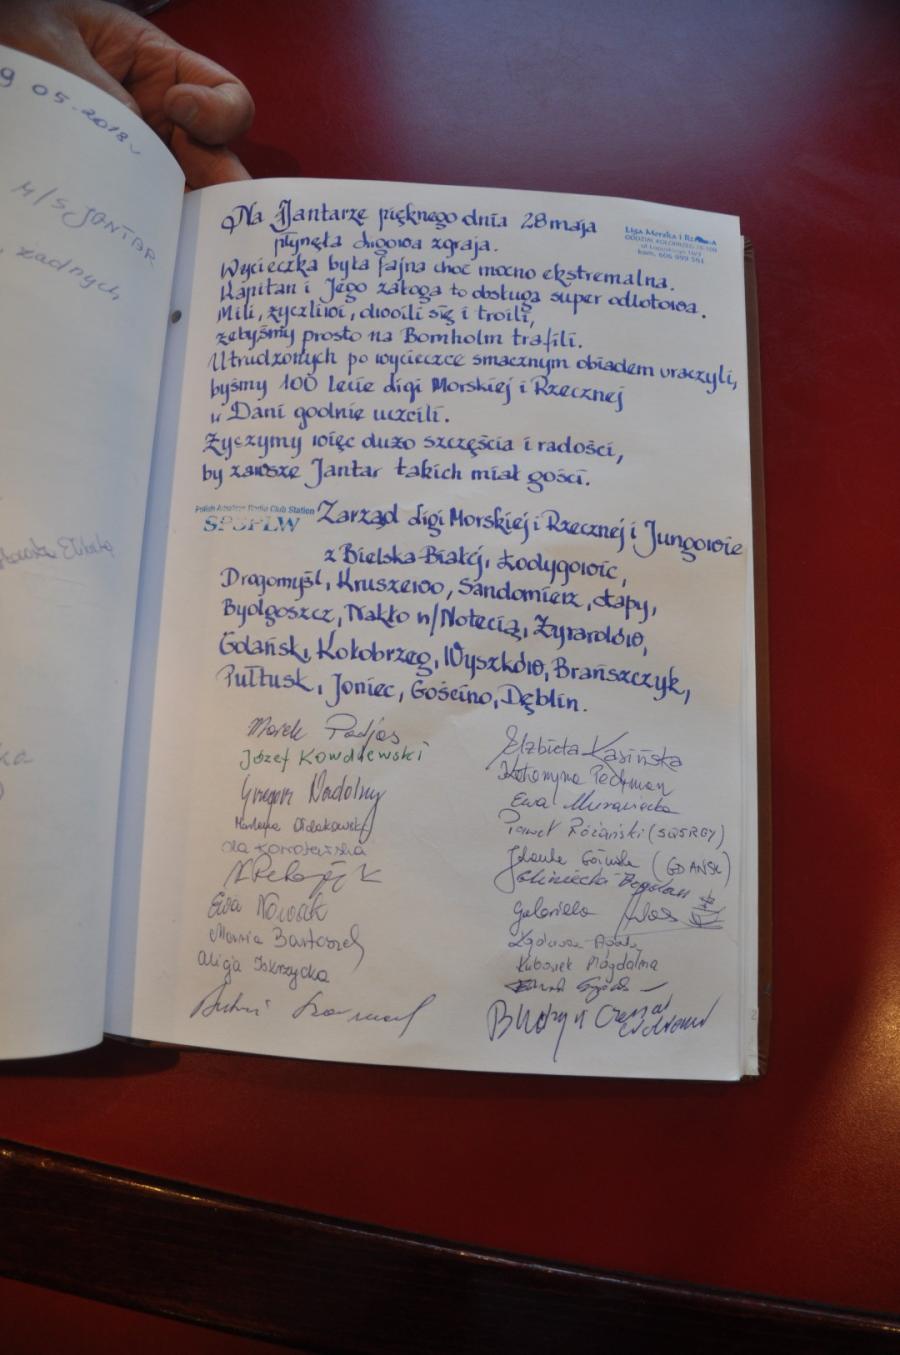 9 05.2018r
M/S JANTAR
, żadnych
Na Jantarze pięknego dnia 28 maja
płynęła ligowa zgraja.
Wycieczka była fajna choć mocno ekstremalna.
Kapitan i Jego załoga to obsługa super odlotowa.
Mili, życzliwi, dwoili się i troili,
żebyśmy prosto na Bornholm trafili.
Utrudzonych po wycieczce smacznym obiadem uraczyli,
byśmy 100 lecie Ligi Morskiej i Rzecznej
w Dani godnie uczcili.
Życzymy więc dużo szczęścia i radości,
by zawsze Jantar takich miał gości.
Liga Morska i Rzeczna
ODDZIAŁ KOŁOBRZEG 78-100
kom. 606 999 561
Polish Amateur Radio Club Station
Zarząd Ligi Morskiej i Rzecznej i Jungowie
z Bielska-Białej, Łodygowic,
Drogomyśl, Kruszewo, Sandomierz, Łapy,
Bydgoszcz, Nakło n/Notecią, Żyrardów,
Gdańsk, Kołobrzeg, Wyszków, Brańszczyk,
Pułtusk, Joniec, Gościno, Dęblin.
Marek Padjas
Józef Kowalewski
Grzegorz Nadolny
Ewa Nowak
Maria
Alicja Iskrzycka
Elżbieta Kasińska
Katarzyna
Ewa Murawiecka
Paweł Różański (SQ5RGY)
Jolanta (GDAŃSK)
Bogdan
Gabriela
Magdalena